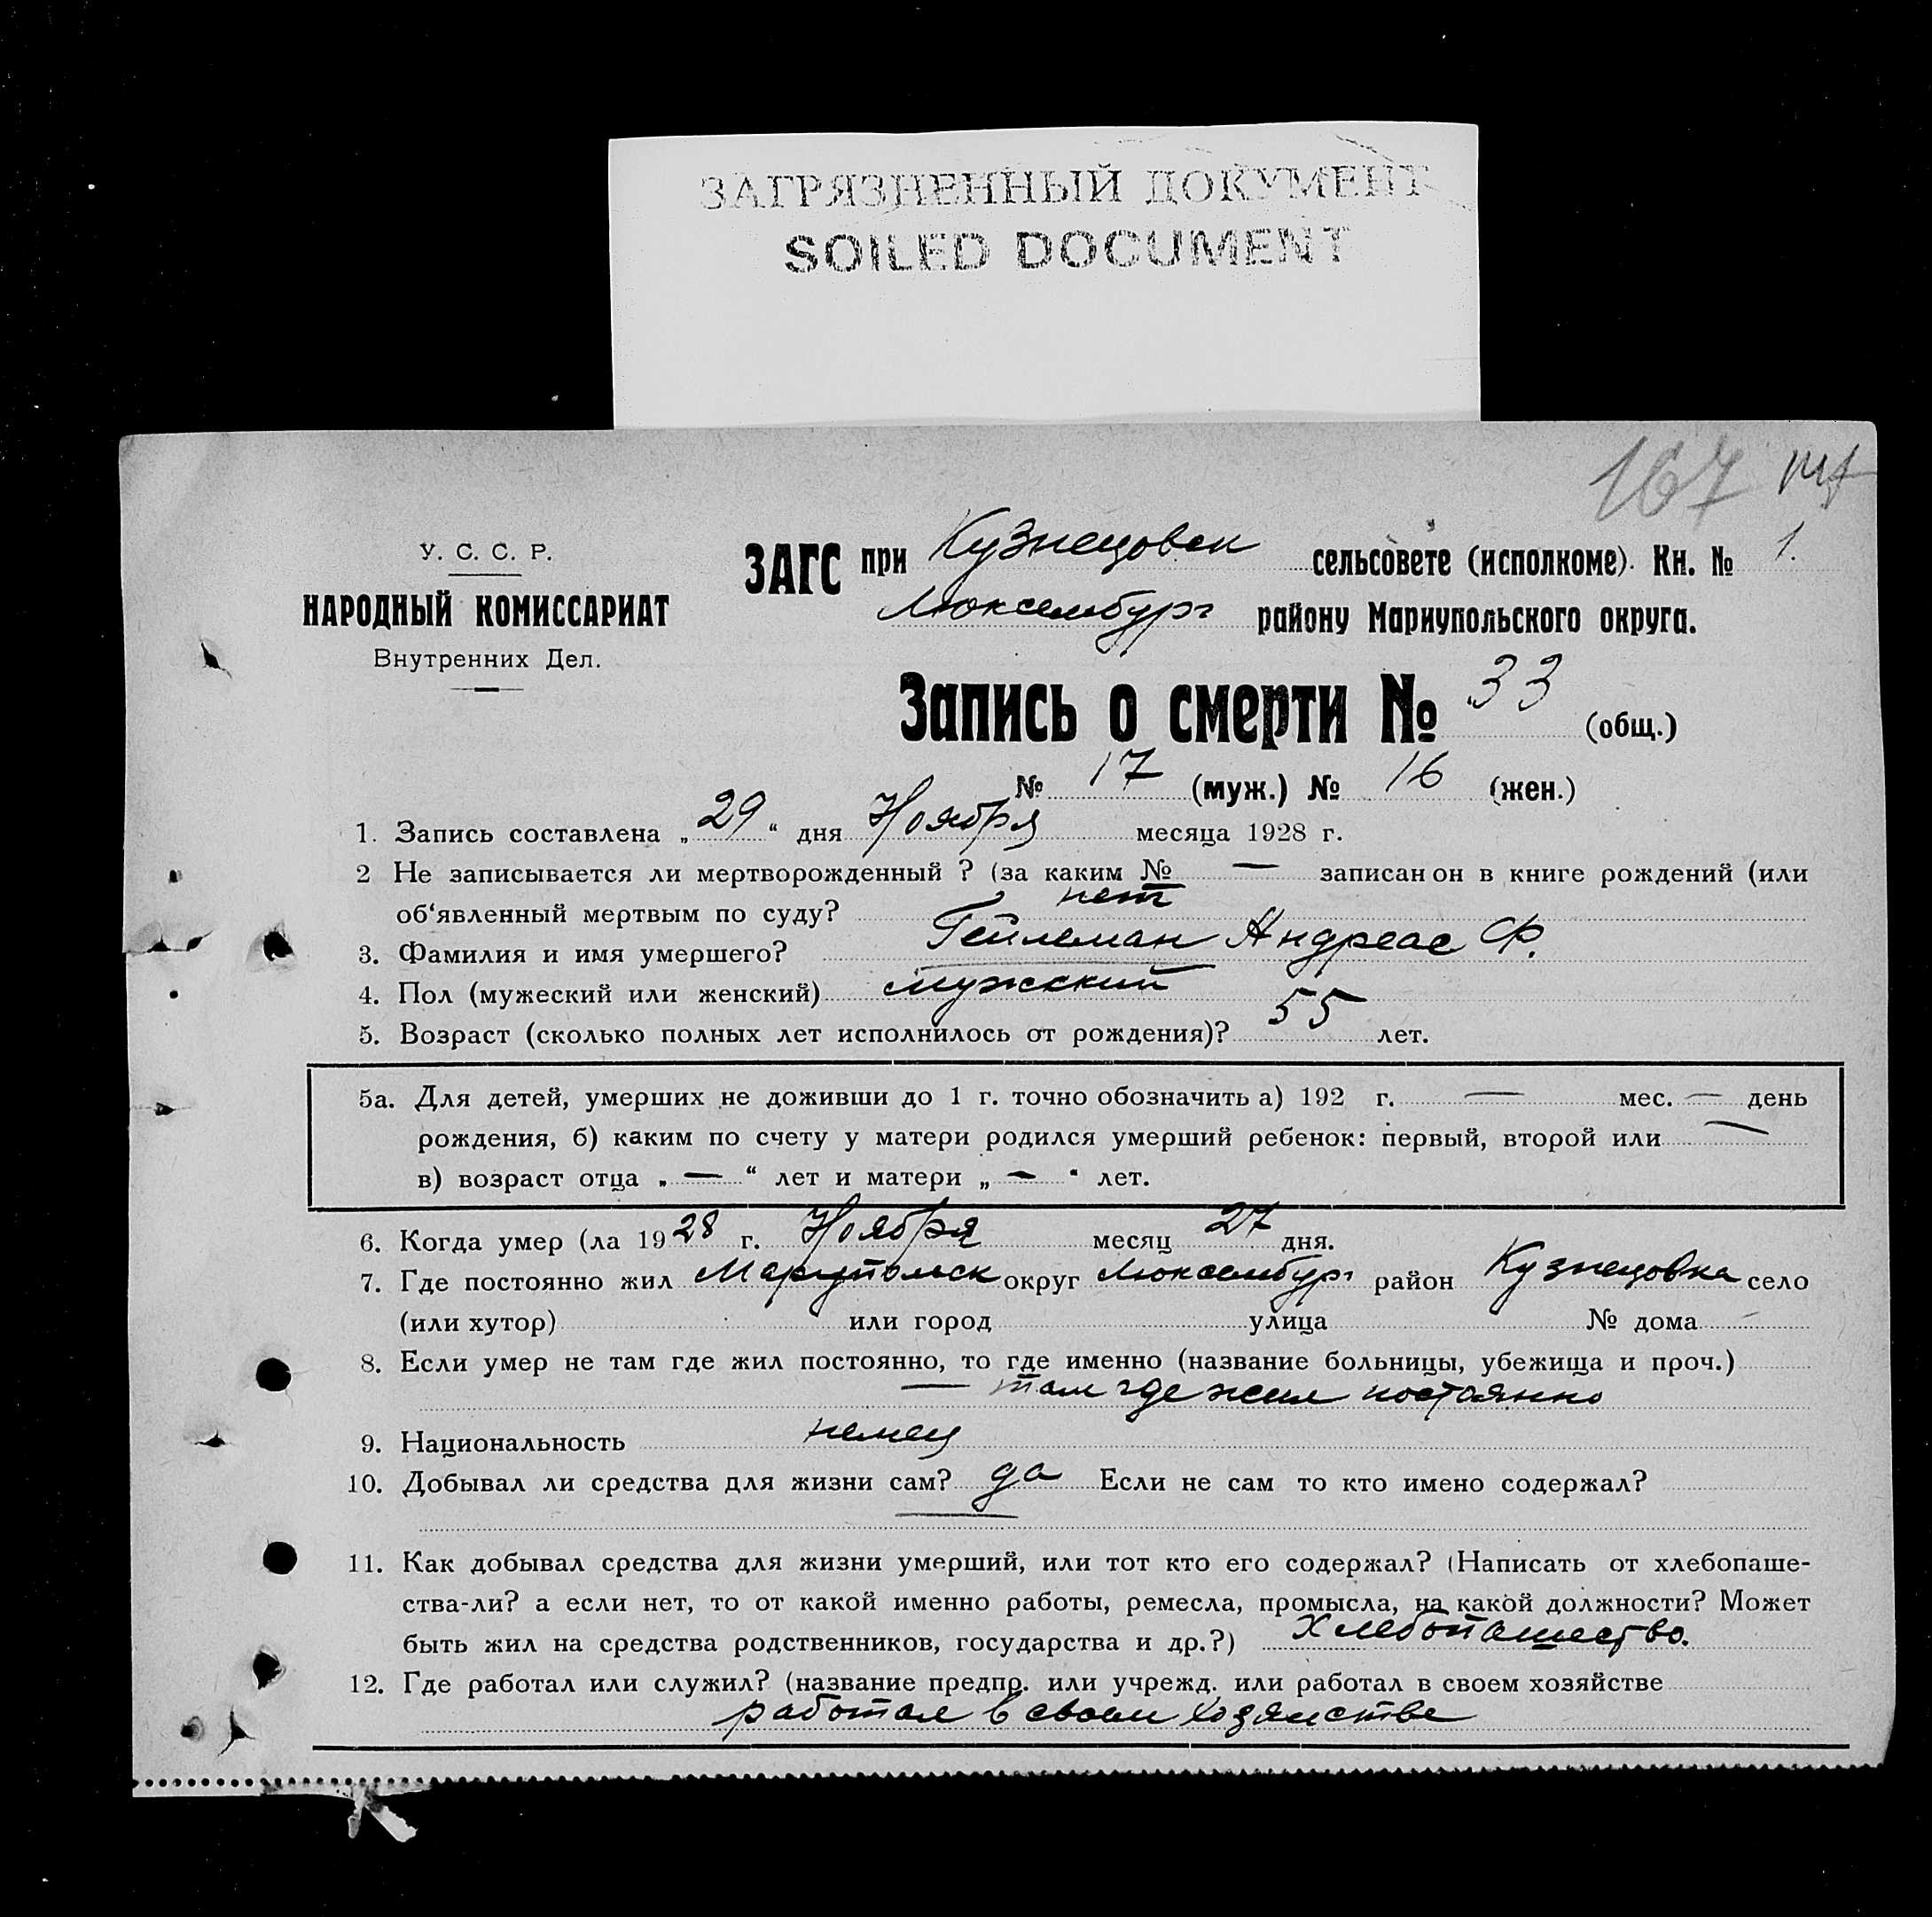 ЗАГРЯЗНЕННЫЙ ДОКУМЕНТ
SOILED DOCUMENT
167
У. С. С. Р.
НАРОДНЫЙ КОМИССАРИАТ
Внутренних Дел.
ЗАГС при Кузнецовск сельсовете (исполкоме). Кн. № 1.
Люксембург району Мариупольского округа.
Запись о смерти № 33 (общ.)
№ 17 (муж.) № 16 (жен.)
1. Запись составлена „29“ дня Ноября месяца 1928 г.
2 Не записывается ли мертворожденный ? (за каким № — записан он в книге рождений (или
об‘явленный мертвым по суду? нет
3. Фамилия и имя умершего? Гейлеман Андреас Ф.
4. Пол (мужеский или женский) мужский
5. Возраст (сколько полных лет исполнилось от рождения)? 55 лет.
5а. Для детей, умерших не доживши до 1 г. точно обозначить а) 192 г. — мес. — день
рождения, б) каким по счету у матери родился умерший ребенок: первый, второй или —
в) возраст отца „—“ лет и матери „—“ лет.
6. Когда умер (ла 1928 г. Ноября месяц 27 дня.
7. Где постоянно жил Мариупольск округ Люксембург район Кузнецовка село
(или хутор) или город улица № дома
8. Если умер не там где жил постоянно, то где именно (название больницы, убежища и проч.)
— там где жил постоянно
9. Национальность немец
10. Добывал ли средства для жизни сам? да Если не сам то кто имено содержал?
—
11. Как добывал средства для жизни умерший, или тот кто его содержал? (Написать от хлебопаше-
ства-ли? а если нет, то от какой именно работы, ремесла, промысла, на какой должности? Может
быть жил на средства родственников, государства и др.?) Хлебопашество.
12. Где работал или служил? (название предпр. или учрежд. или работал в своем хозяйстве
работал в своем хозяистве